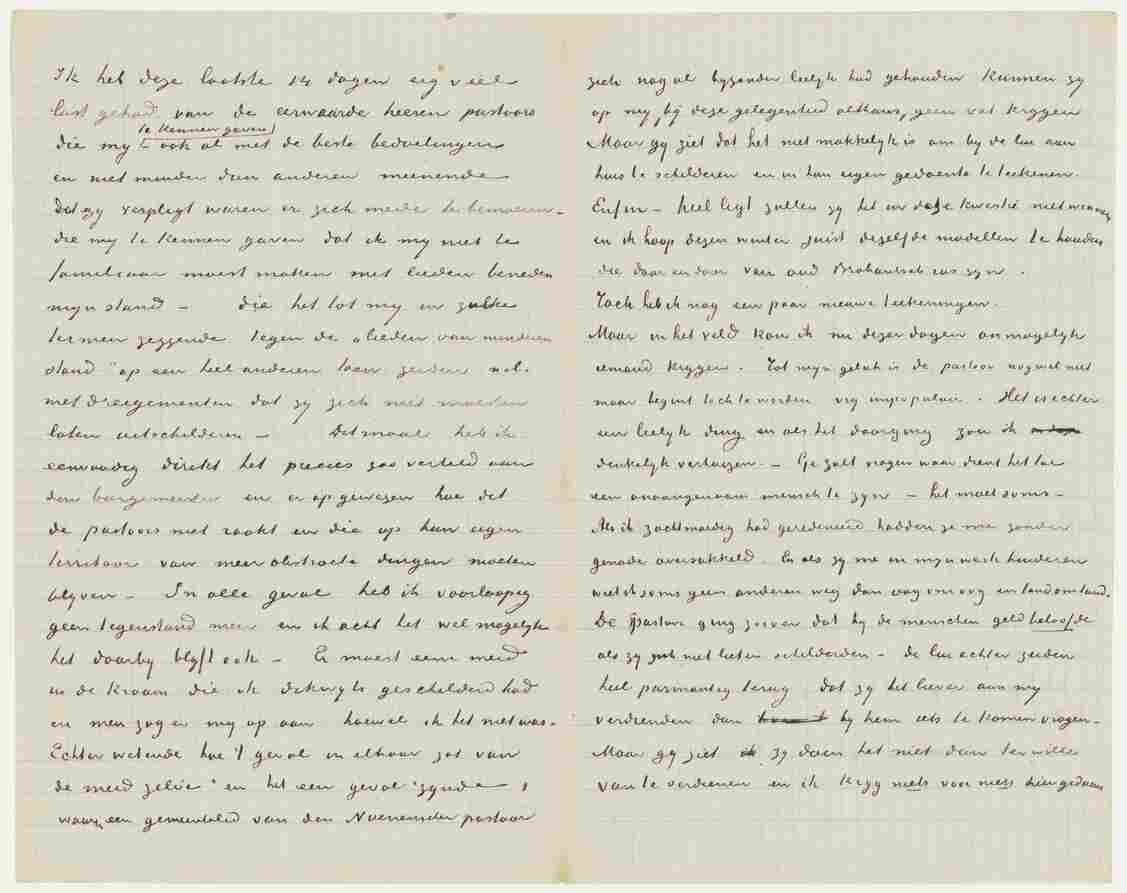 Ik heb deze laatste 14 dagen erg veel
last gehad van de eerwaarde heeren pastoors
te kennen gaven
die my ook al met de beste bedoelingen
en niet minder dan anderen meenende
dat zy verpligt waren er zich mede te bemoeien –
die my te kennen gaven dat ik my niet te
familiaar moest maken met lieden beneden
myn stand – die het tot my in zulke
termen zeggende tegen de „lieden van minderen
stand” op een heel anderen toon zeiden nl.
met dreigementen dat zy zich niet moesten
laten uitschilderen – Ditmaal heb ik
eenvoudig direkt het precies zoo verteld aan
den burgemeester en er op gewezen hoe dit
de pastoors niet raakt en die op hun eigen
territoir van meer abstracte dingen moeten
blyven – In alle geval heb ik voorloopig
geen tegenstand meer en ik acht het wel mogelyk
het daarby blyft ook – Er moest eene meid
in de kraam die ik dikwyls geschilderd had
en men zag er my op aan hoewel ik het niet was –
Echter wetende hoe 't geval in elkaar zat van
de meid zelve en het een geval zynde,
waarin een gemeentelid van den Nuenenschen pastoor
zich nog al byzonder leelyk had gehouden kunnen zy
op my, bij deze gelegenheid althans, geen vat krygen
Maar gy ziet dat het niet makkelyk is om by de lui aan
huis te schilderen en in hun eigen gedoente te teekenen.
Enfin – heel ligt zullen zy het in deze kwestie niet winnen
en ik hoop dezen winter juist dezelfde modellen te houden
die door en door van oud Brabantsch ras zyn.
Toch heb ik nog een paar nieuwe teekeningen.
Maar in het veld kan ik nu dezer dagen onmogelyk
iemand krygen. Tot myn geluk is de pastoor nog wel niet
maar begint toch te worden vry impopulair. Het is echter
een leelyk ding en als het doorging zou ik
denkelyk verhuizen. – Ge zult vragen waar dient het toe
een onaangenaam mensch te zyn – het moet soms –
Als ik zachtmoedig had geredeneerd hadden ze me zonder
genade overrakkeld. En als zy me in myn werk hinderen
weet ik soms geen anderen weg dan oog om oog en tand om tand.
De Pastoor ging zoover dat hy de menschen geld beloofde
als zy zich niet lieten schilderen – de lui echter zeiden
heel parmantig terug dat zy het liever aan my
verdienden dan by hem iets te komen vragen –
Maar gy ziet zy doen het niet dan ter wille
van te verdienen en ik kryg niets voor niets hier gedaan